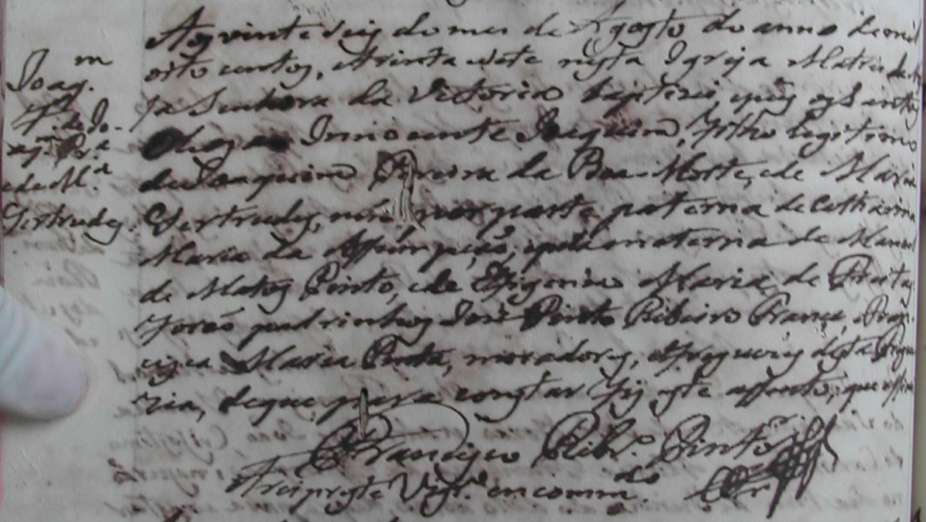 Joaq.m
F.o de Jo-
aq. Per.a
e de M.a
Gertrudes.
Aos vinte seis do mes de Agosto do anno de mil
oito centos, e trinta e sete nesta Igreja Matris de
Senhora da Victoria baptizei, e pus os Santos
Oleos ao Innocente Joaquim, filho legitimo
de Joaquim Pereira da Boa-Morte, e de Maria
Gertrudes, neto por parte paterna de Catharina
Maria da Assumpção, e pela materna de Manoel
de Matos Pinto, e de Efigenia Maria de Freitas
forão padrinhos José Pinto Ribeiro França, e Fran-
cisca Maria Pinta, moradores, e freguezes desta Fregue-
zia, de que para constar fiz este assento, que assinei
Francisco Rib.ro Pinto
Prespyte Vigr.o encomm.do